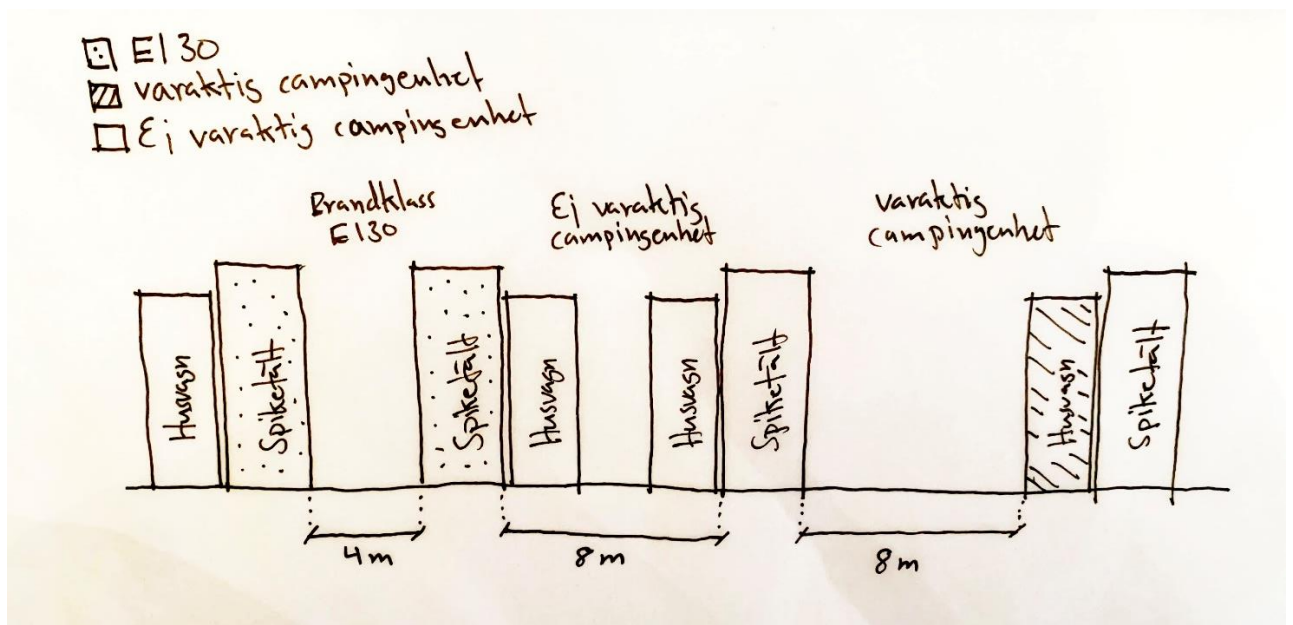 EI 30
varaktig campingenhet
Ej varaktig campingenhet
Brandklass
EI30
Ej varaktig
campingenhet
varaktig
campingenhet
Husvagn
Spiketält
Spiketält
Husvagn
Husvagn
Spiketält
Husvagn
Spiketält
4m
8m
8m